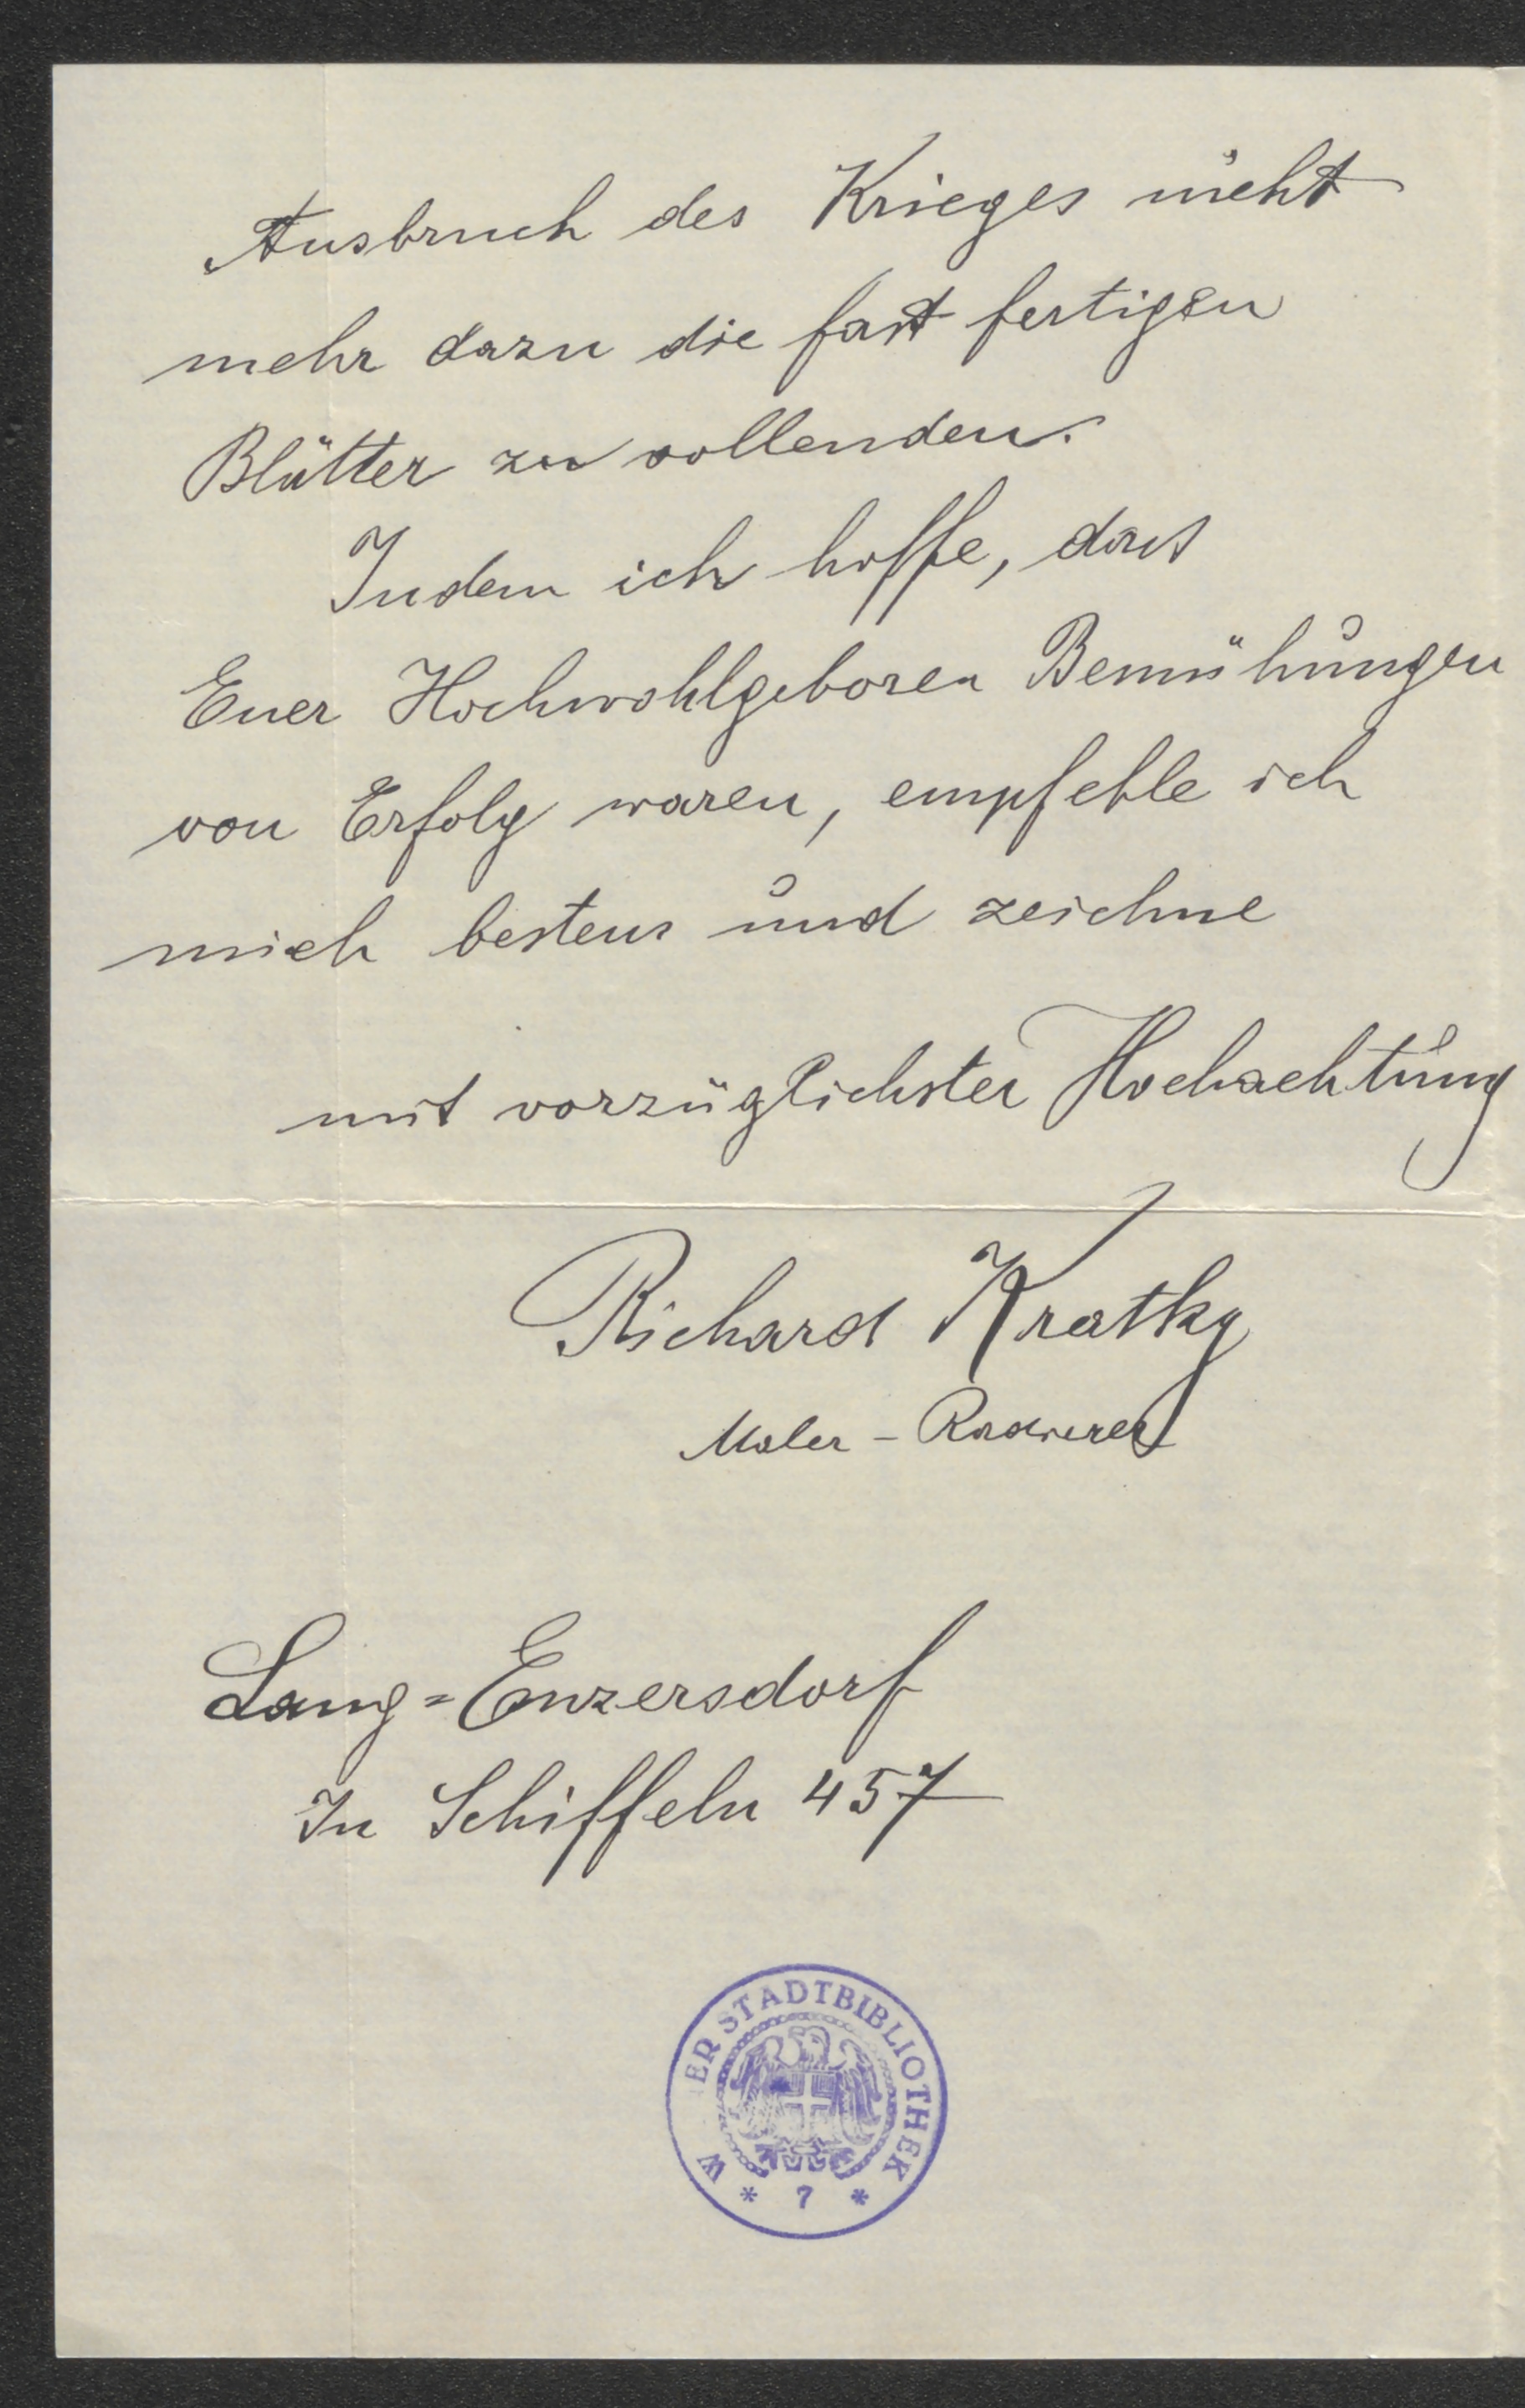 Ausbruch des Krieges nicht
mehr dazu die fast fertigen
Blätter zu vollenden.
Indem ich hoffe, dass
Euer Hochwohlgeboren Bemühungen
von Erfolg waren, empfehle ich
mich bestens und zeichne
mit vorzüglichster Hochachtung
Richard Kratky
Maler - Radierer
Lang=Enzersdorf
In Schiffeln 457
W ER STADTBIBLIOTHEK
* 7 *